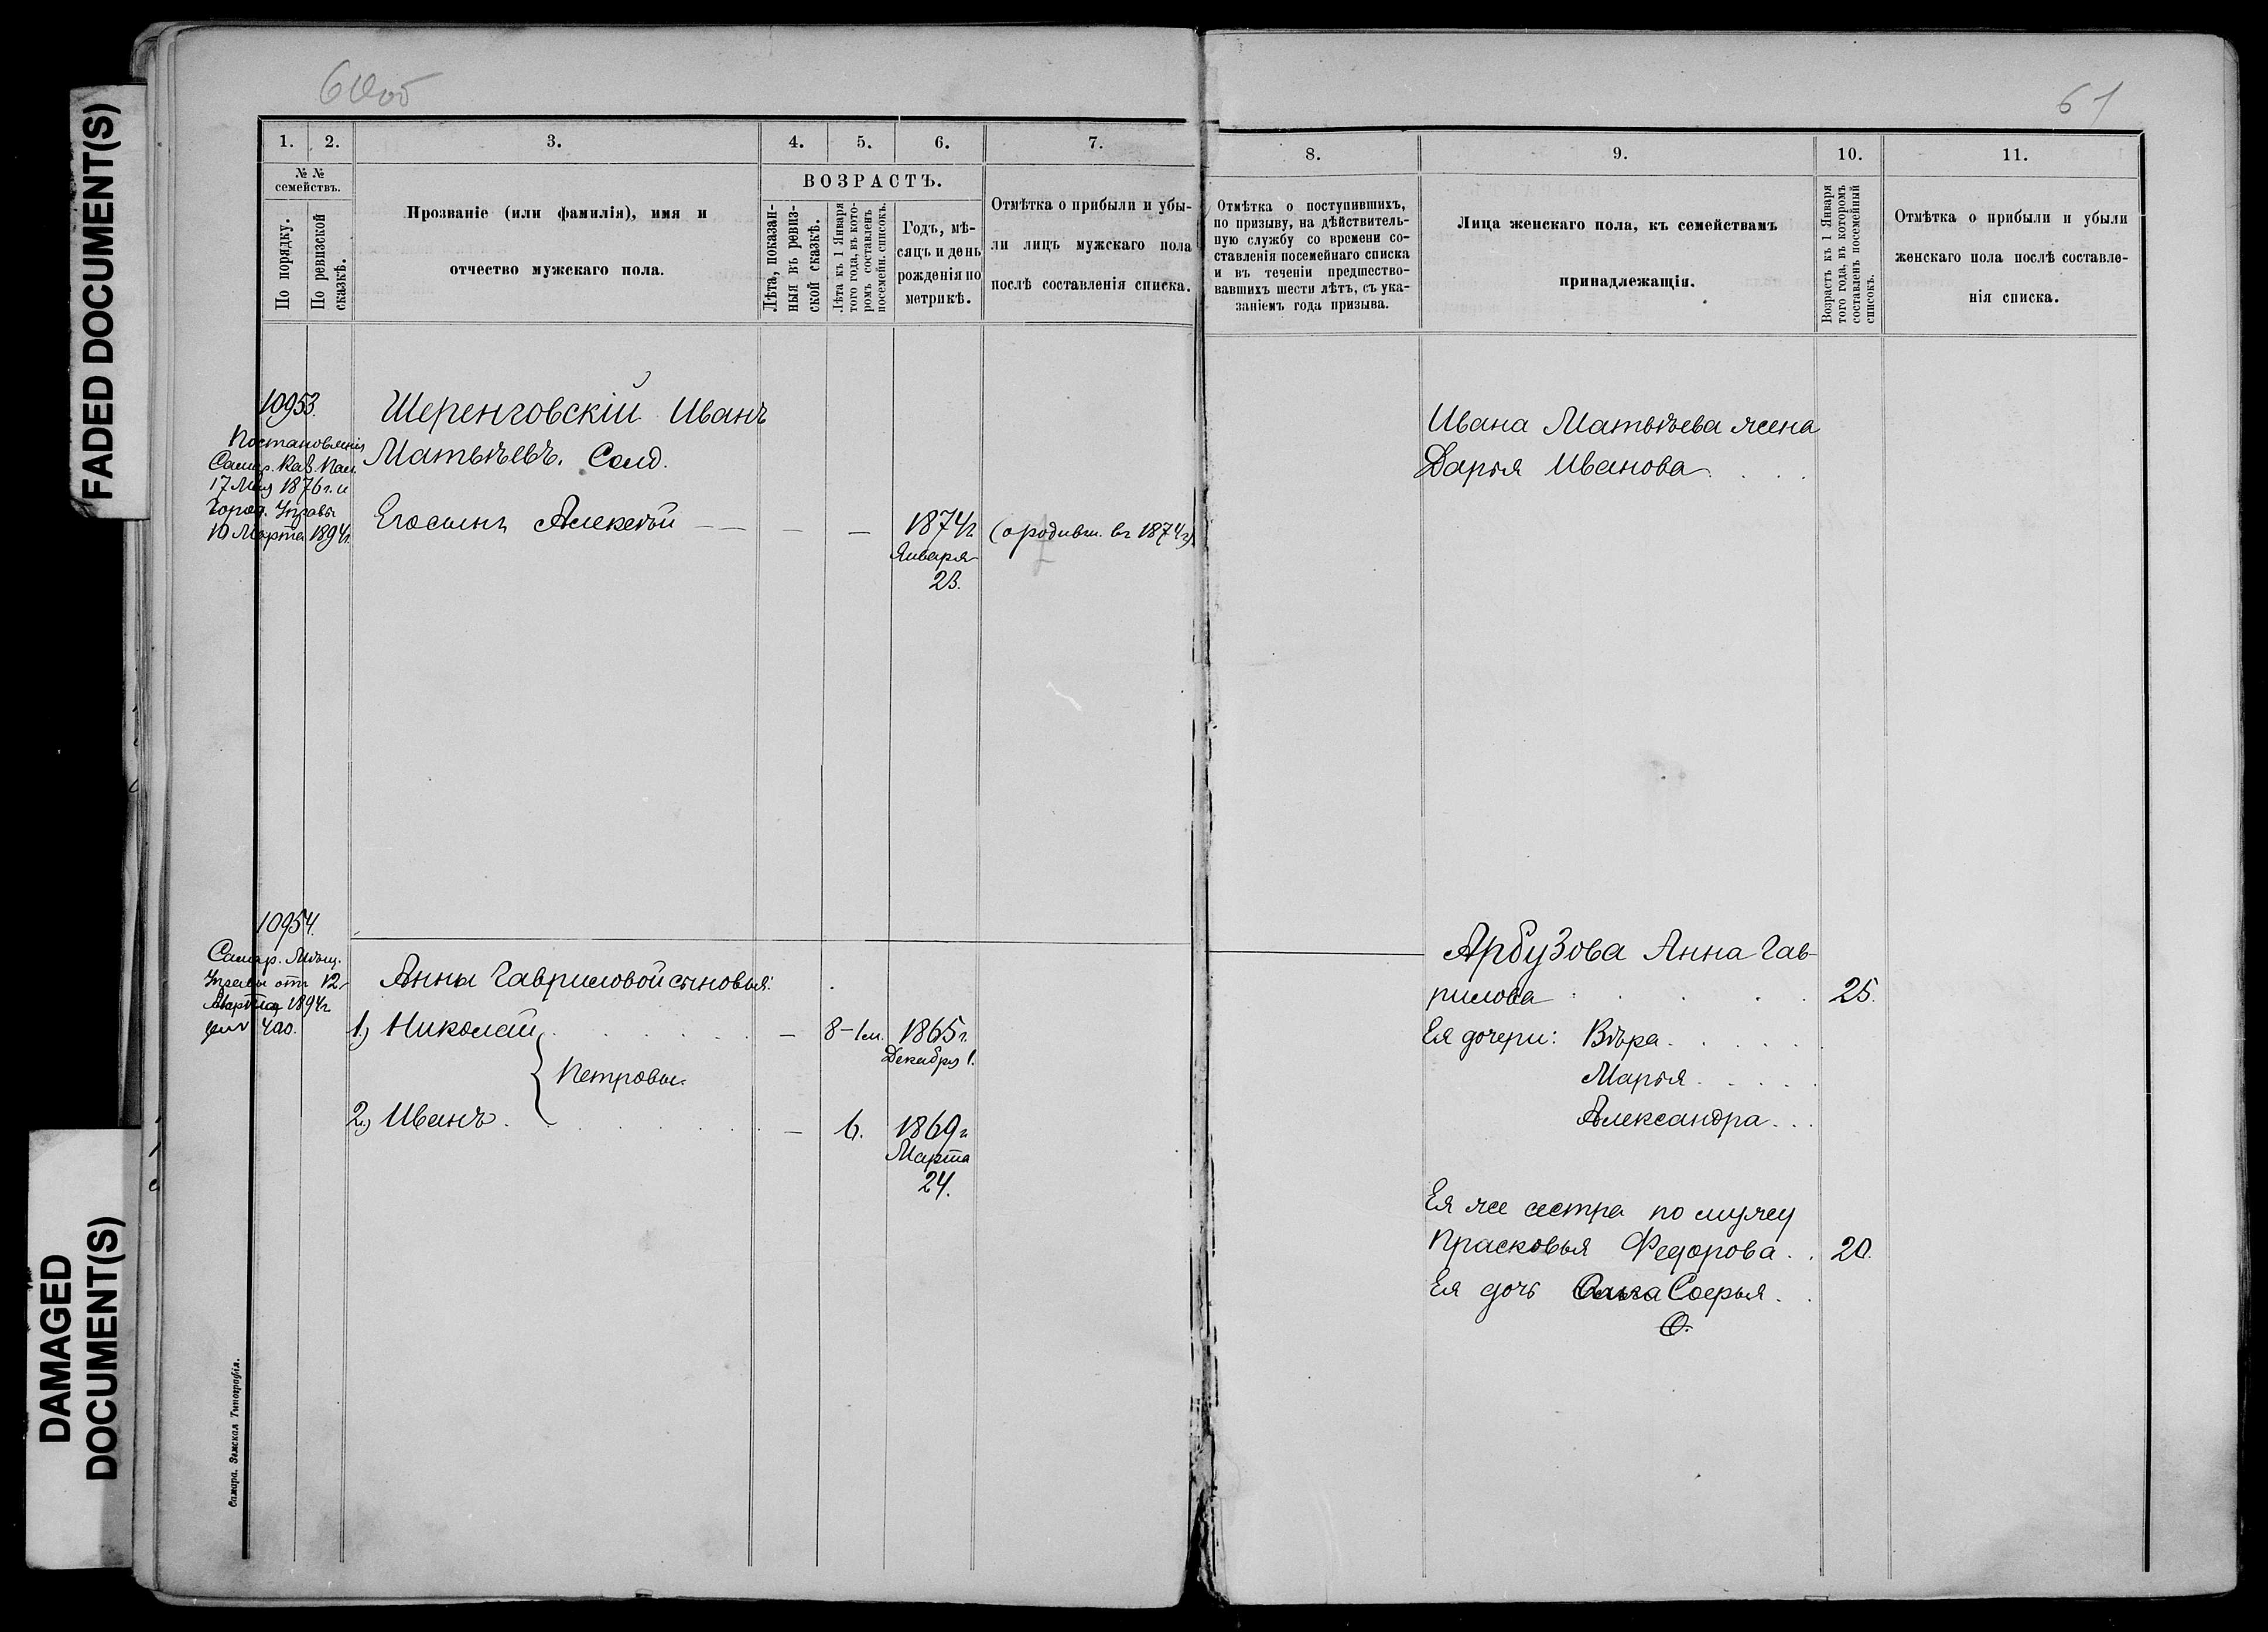 FADED DOCUMENT(S)
DAMAGED
DOCUMENT(S)
60об
1.
2.
3.
4.
5.
6.
7.
№ №
семействъ.
По порядку.
По ревизской
сказкѣ.
Прозваніе (или фамилія), имя и
отчество мужскаго пола.
ВОЗРАСТЪ.
Лѣта, показан-
ныя въ ревиз-
ской сказкѣ.
Лѣта къ 1 Января
того года, въ кото-
ромъ составленъ
посемейн. списокъ.
Годъ, мѣ-
сяцъ и день
рожденія по
метрикѣ.
Отмѣтка о прибыли и убы-
ли лицъ мужскаго пола
послѣ составленія списка.
10953.
Постановленія
Самар. Каз. Пал.
17 Мая 1876 г. и
Город. Управы
10 Марта 1894 г.
Шеренговскій Иванъ
Матвѣевъ. Солд.
Его сынъ Алексѣй — — — — 1874 г. (о родивш. въ 1874 г.)
Января
23.
10954.
Самар. Мѣщ.
Управы отъ 12
Марта 1894 г.
за № 400.
Анны Гавриловой сыновья:
1.) Николай — 8-1м. 1865 г.
Декабря 1.
Петровы.
2.) Иванъ — 6. 1869 г.
Марта
24.
Самара. Земская Типографія.
61
8.
9.
10.
11.
Отмѣтка о поступившихъ,
по призыву, на дѣйствитель-
ную службу со времени со-
ставленія посемейнаго списка
и въ теченіи предшество-
вавшихъ шести лѣтъ, съ ука-
заніемъ года призыва.
Лица женскаго пола, къ семействамъ
принадлежащія.
Возрастъ къ 1 Января
того года, въ которомъ
составленъ посемейный
списокъ.
Отмѣтка о прибыли и убыли
женскаго пола послѣ составле-
нія списка.
Ивана Матвѣева жена
Дарья Иванова . . .
Арбузова Анна Гав-
рилова . . . . 25.
Ея дочери: Вѣра . . . . .
Марья . . . . .
Александра . . .
Ея же сестра по мужу
Прасковья Федорова . . 20.
Ея дочь Софья . .